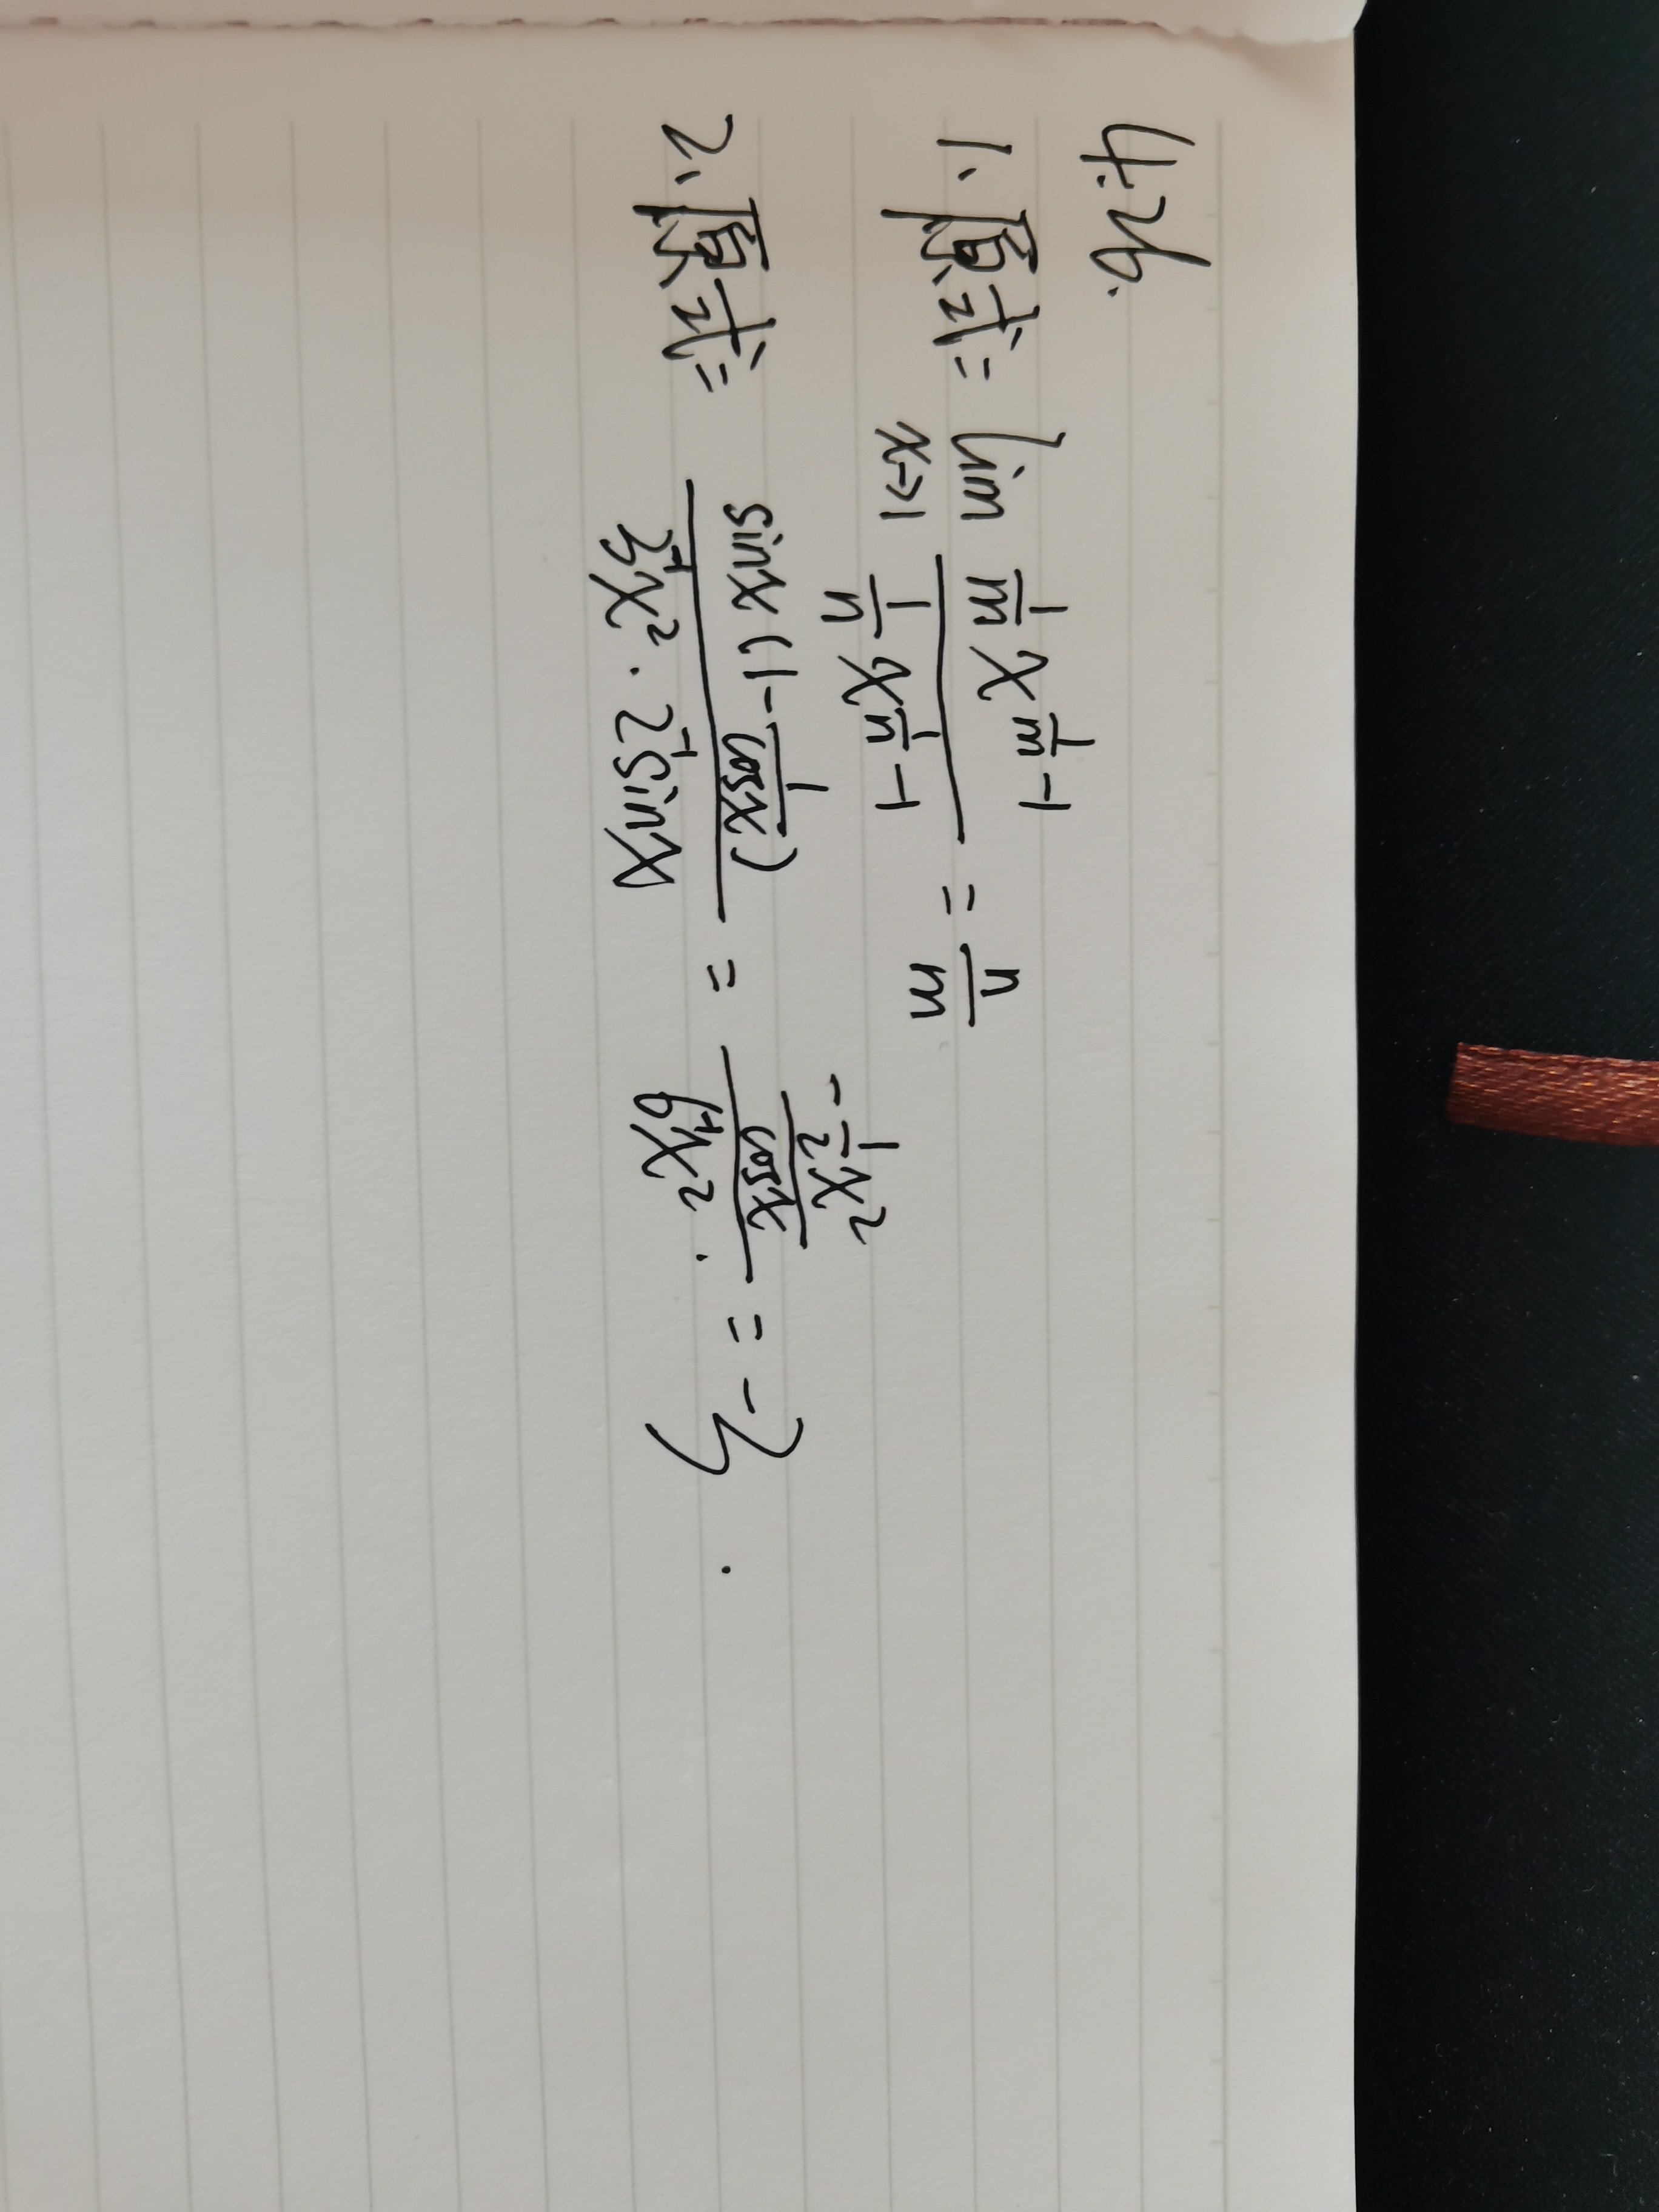 4.26.
1、原式= lim_{x→1} \frac{\frac{1}{m}x^{\frac{1}{m}-1}}{\frac{1}{n}x^{\frac{1}{n}-1}} = \frac{n}{m}
2、原式= \frac{sinx(1-\frac{1}{cosx})}{3^{-1}x^2·2^{-1}sinx} = \frac{\frac{-\frac{1}{2}x^2}{cosx}}{6^{-1}x^2·} = -3 .